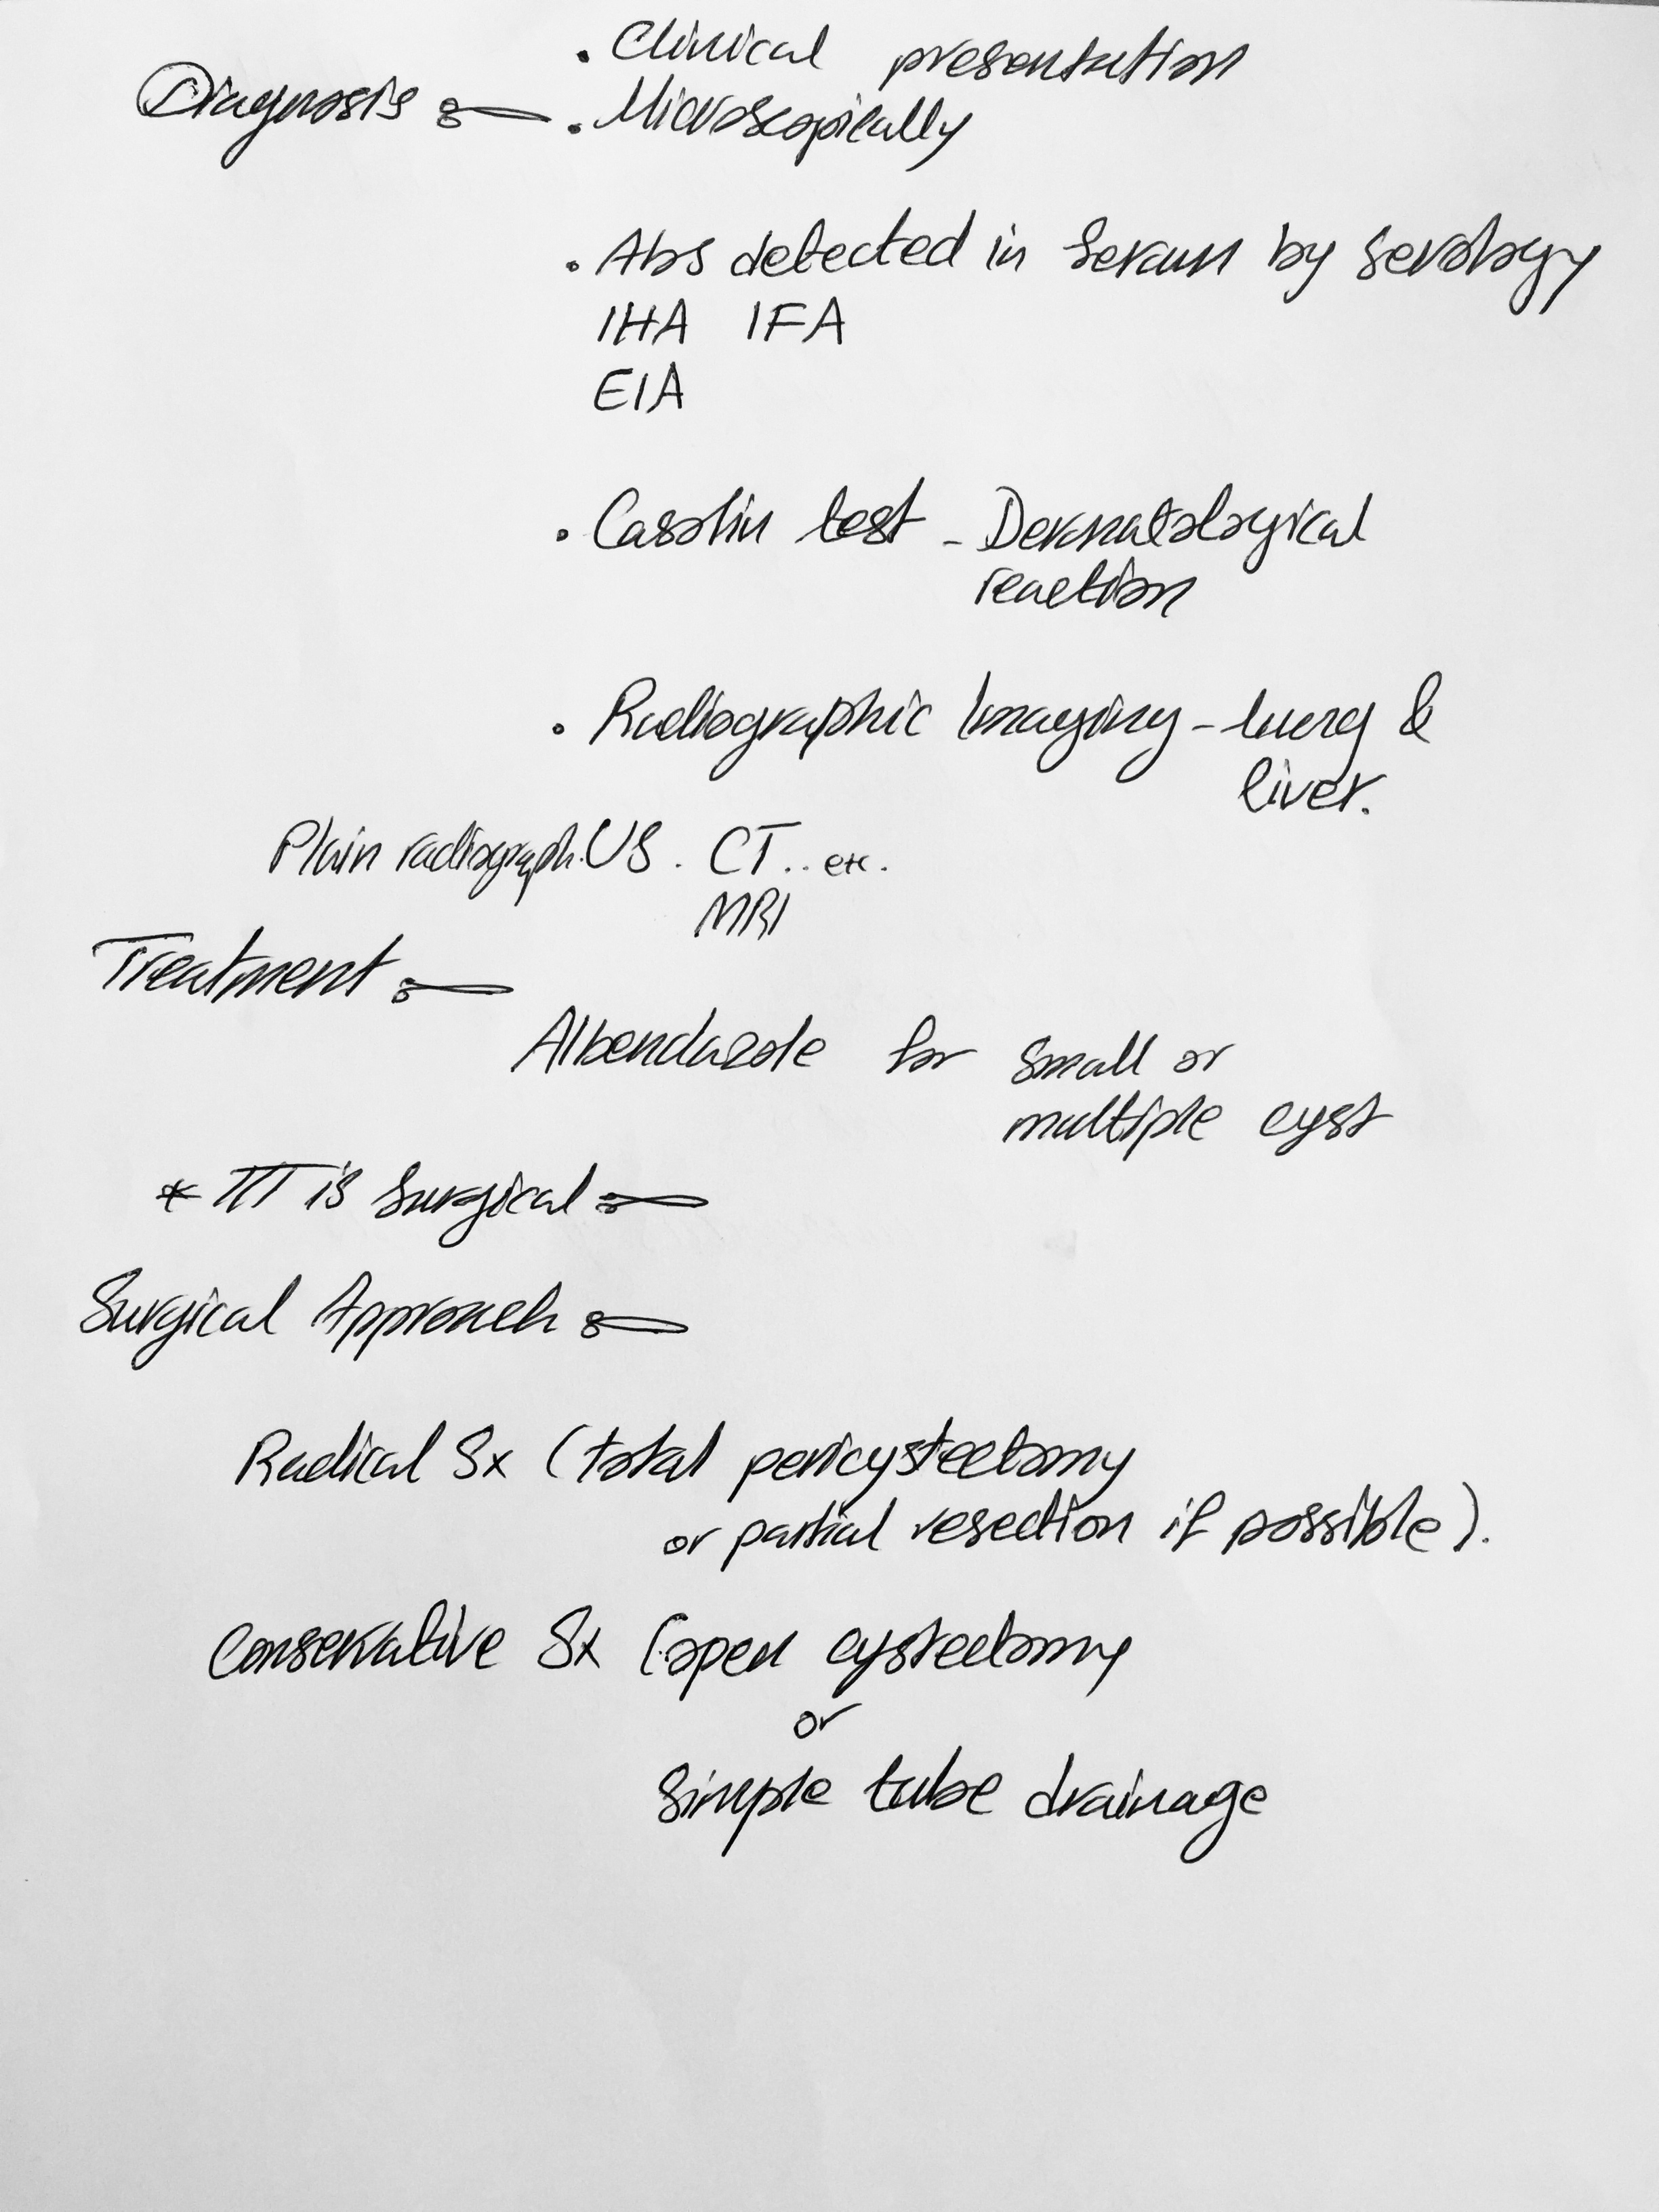 . Clinical presentation
Diagnosis :- . Microscopically
. Abs detected in Serum by serology
IHA IFA
EIA
. Casolin test - Dermatological
reaction
. Radiographic Imaging - lung &
liver.
Plain radiograph. US . CT.. etc.
MRI
Treatment :-
Albendazole for small or
multiple cyst
* TT is Surgical :-
Surgical Approach :-
Radical Sx (total pericystectomy
or partial resection if possible).
Conservative Sx (open cystectomy
or
simple tube drainage